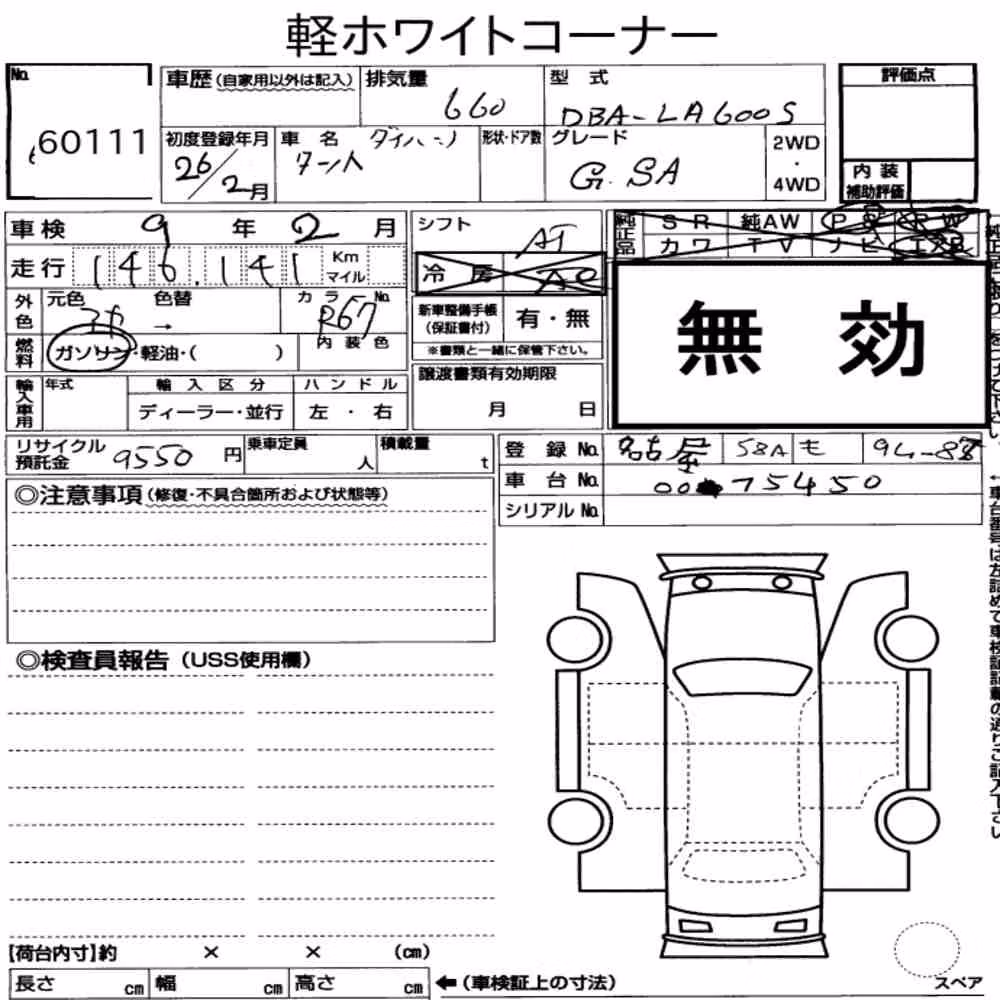 軽ホワイトコーナー
No. 60111
車歴 (自家用以外は記入)
排気量 660
型式 DBA-LA600S
評価点
初度登録年月 26/2月
車名 ダイハツ タント
形状・ドア数
グレード G.SA
2WD・4WD
内装補助評価
車検 9年 2月
シフト AT
純正品 SR 純AW PS PW
カワ TV ナビ
走行 146,141 Km マイル
冷房 AC
無効
外色 元色 色替 →
カラーNo. R67
内装色
新車整備手帳(保証書付) 有・無
※書類と一緒に保管下さい。
燃料 ガソリン・軽油・( )
譲渡書類有効期限
月 日
輸入車用 年式 輸入区分 ハンドル
ディーラー・並行 左・右
リサイクル預託金 9550円
乗車定員 人
積載量 t
登録No. 名古屋 58A モ
車台No. 75450
シリアルNo.
◎注意事項 (修復・不具合箇所および状態等)
◎検査員報告 (USS使用欄)
【荷台内寸】約 × × (cm)
長さ cm 幅 cm 高さ cm
←(車検証上の寸法)
スペア